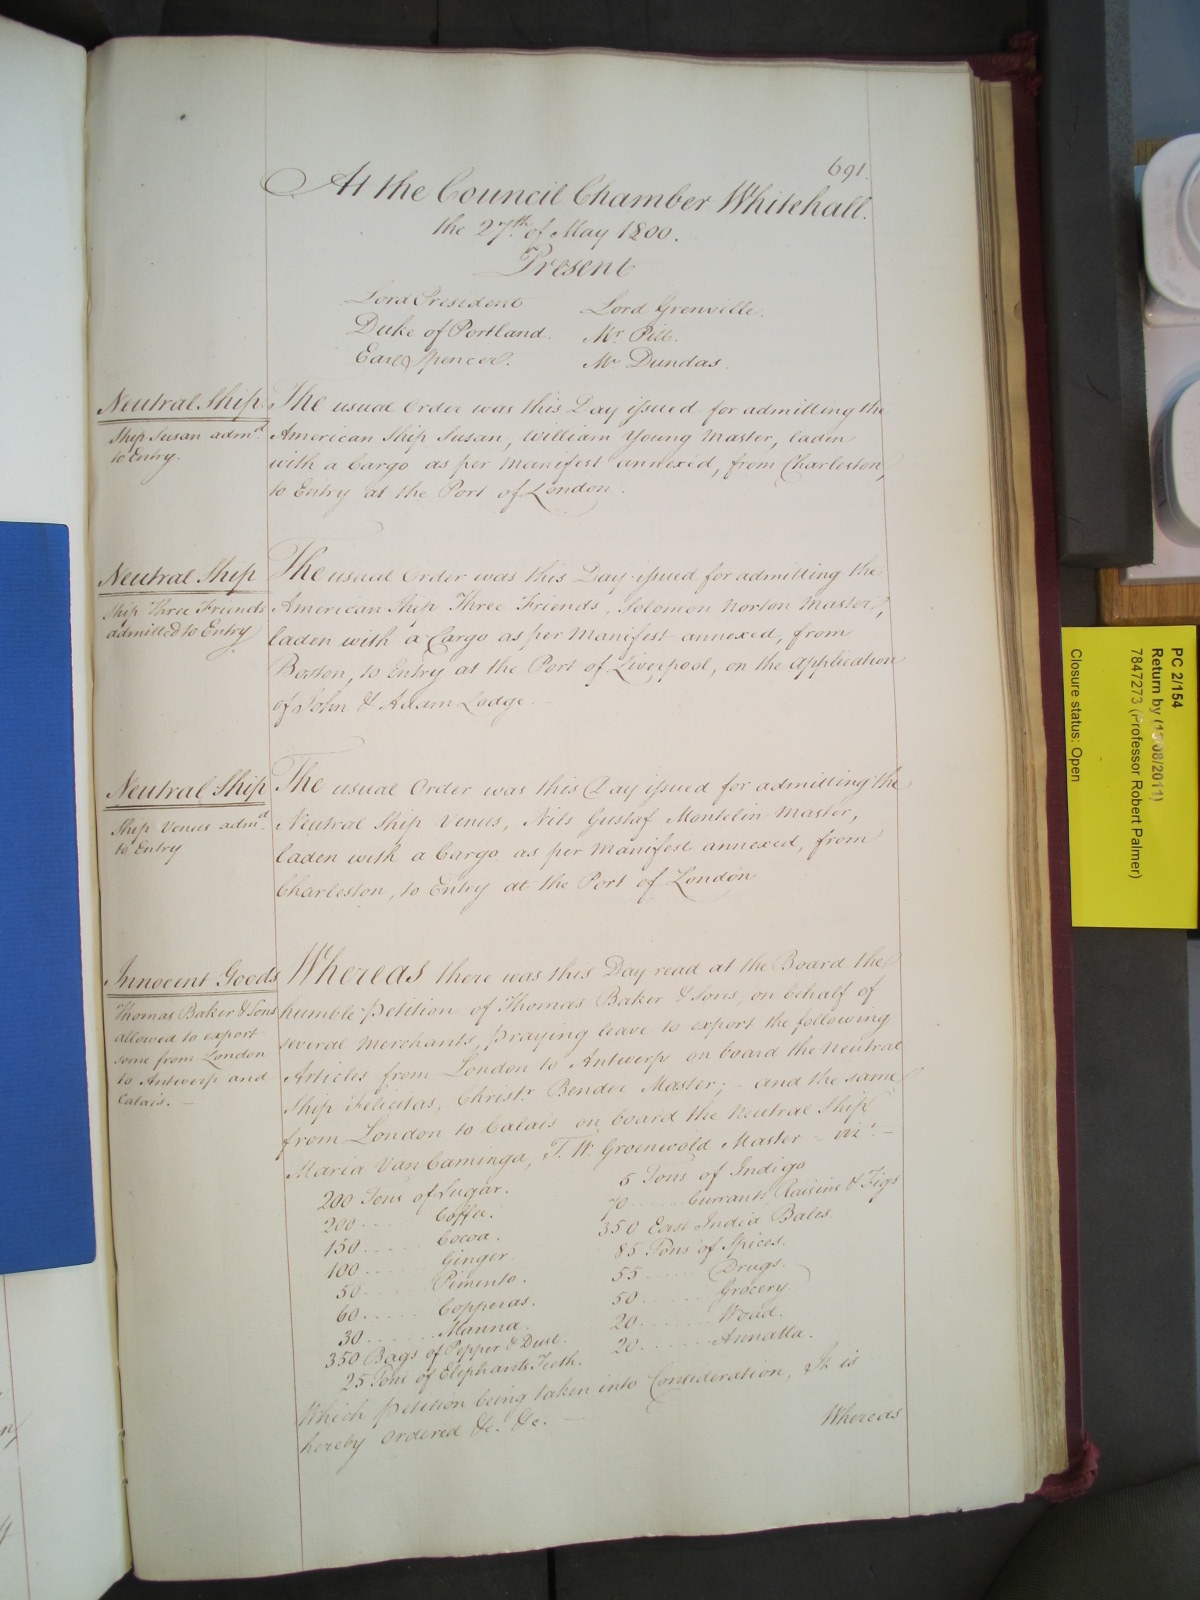 691.
At the Council Chamber Whitehall.
the 27th of May 1800.
Present
Lord President
Lord Grenville.
Duke of Portland.
Mr. Pitt.
Earl Spencer.
Mr Dundas.
Neutral Ship
Ship Susan admd.
to Entry.
The usual Order was this Day issued for admitting the
American Ship Susan, William Young Master, laden
with a Cargo as per Manifest annexed, from Charleston,
to Entry at the Port of London.
Neutral Ship
Ship Three Friends
admitted to Entry
The usual Order was this Day issued for admitting the
American Ship Three Friends, Solomon Norton Master,
laden with a Cargo as per Manifest annexed, from
Boston, to Entry at the Port of Liverpool, on the application
of John & Adam Lodge.
Neutral Ship
Ship Venus admd.
to Entry
The usual Order was this Day issued for admitting the
Neutral Ship Venus, Nils Gustaf Montelin Master,
laden with a Cargo as per Manifest annexed, from
Charleston, to Entry at the Port of London
Innocent Goods
Thomas Baker & Sons
allowed to export
some from London
to Antwerp and
Calais. -
Whereas there was this Day read at the Board the
humble Petition of Thomas Baker & Sons, on behalf of
several Merchants, Praying leave to export the following
Articles from London to Antwerp on board the Neutral
Ship Felicitas, Christr. Bender Master; - and the same
from London to Calais on board the Neutral Ship
Maria Van Caminga, T. W. Groenwold Master - vizt. -
200 Tons of Sugar.
5 Tons of Indigo
200 ..... Coffee.
70 ..... Currants Raisins & Figs
150 ..... Cocoa.
350 East India Bales
100 ..... Ginger
85 Tons of Spices.
50 ..... Pimento.
55 ..... Drugs.
60 ..... Copperas.
50 ..... Grocery.
30 ..... Manna.
20 ..... Woad.
350 Bags of Pepper & Dust.
20 ..... Annatta.
25 Tons of Elephants Teeth.
Which Petition being taken into Consideration, It is
hereby Ordered &c. &c. -
Whereas
PC 2/154
Return by (15/08/2011)
7847273 (Professor Robert Palmer)
Closure status: Open